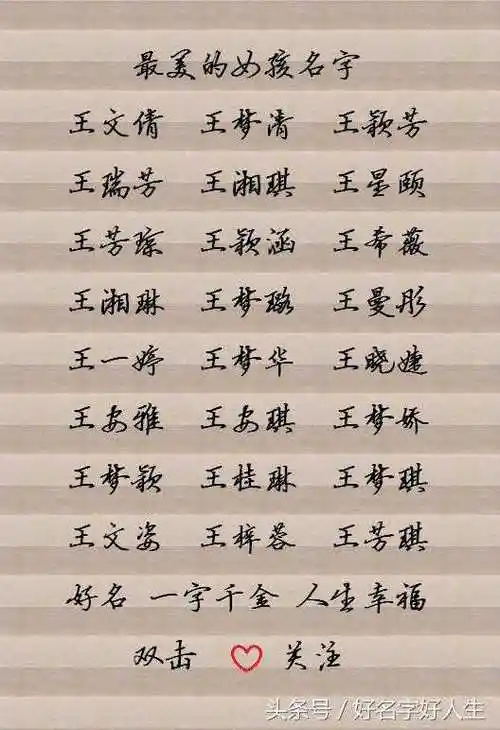 最美的女孩名字
王文倩 王梦清 王颖芳
王瑞芳 王湘琪 王星颐
王芳琮 王颖涵 王希薇
王湘琳 王梦璐 王曼彤
王一婷 王梦华 王晓婕
王安雅 王安琪 王梦娇
王梦颖 王桂琳 王梦琪
王文姿 王梓蓉 王芳琪
好名 一字千金 人生幸福
双击 关注
头条号／好名字好人生